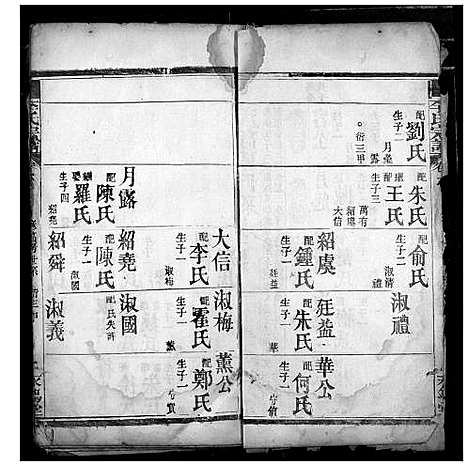 配劉氏
生子二
月臺
露
衍三甲
配朱氏
繼王氏
生子三
萬有
紹虞
大信
配俞氏
生子二
淑清
淑禮
紹虞
配鍾氏
生子一
廷益
廷益
配朱氏
生子一
華
華公
配何氏
生子一
大信
配李氏
生子一
淑梅
淑梅
配霍氏
生子一
薰
薰公
配鄭氏
生子一
月露
配陳氏
繼羅氏
生子四
紹堯
紹堯
配陳氏
生子一
淑國
淑國
配氏失諱
紹舜
淑義